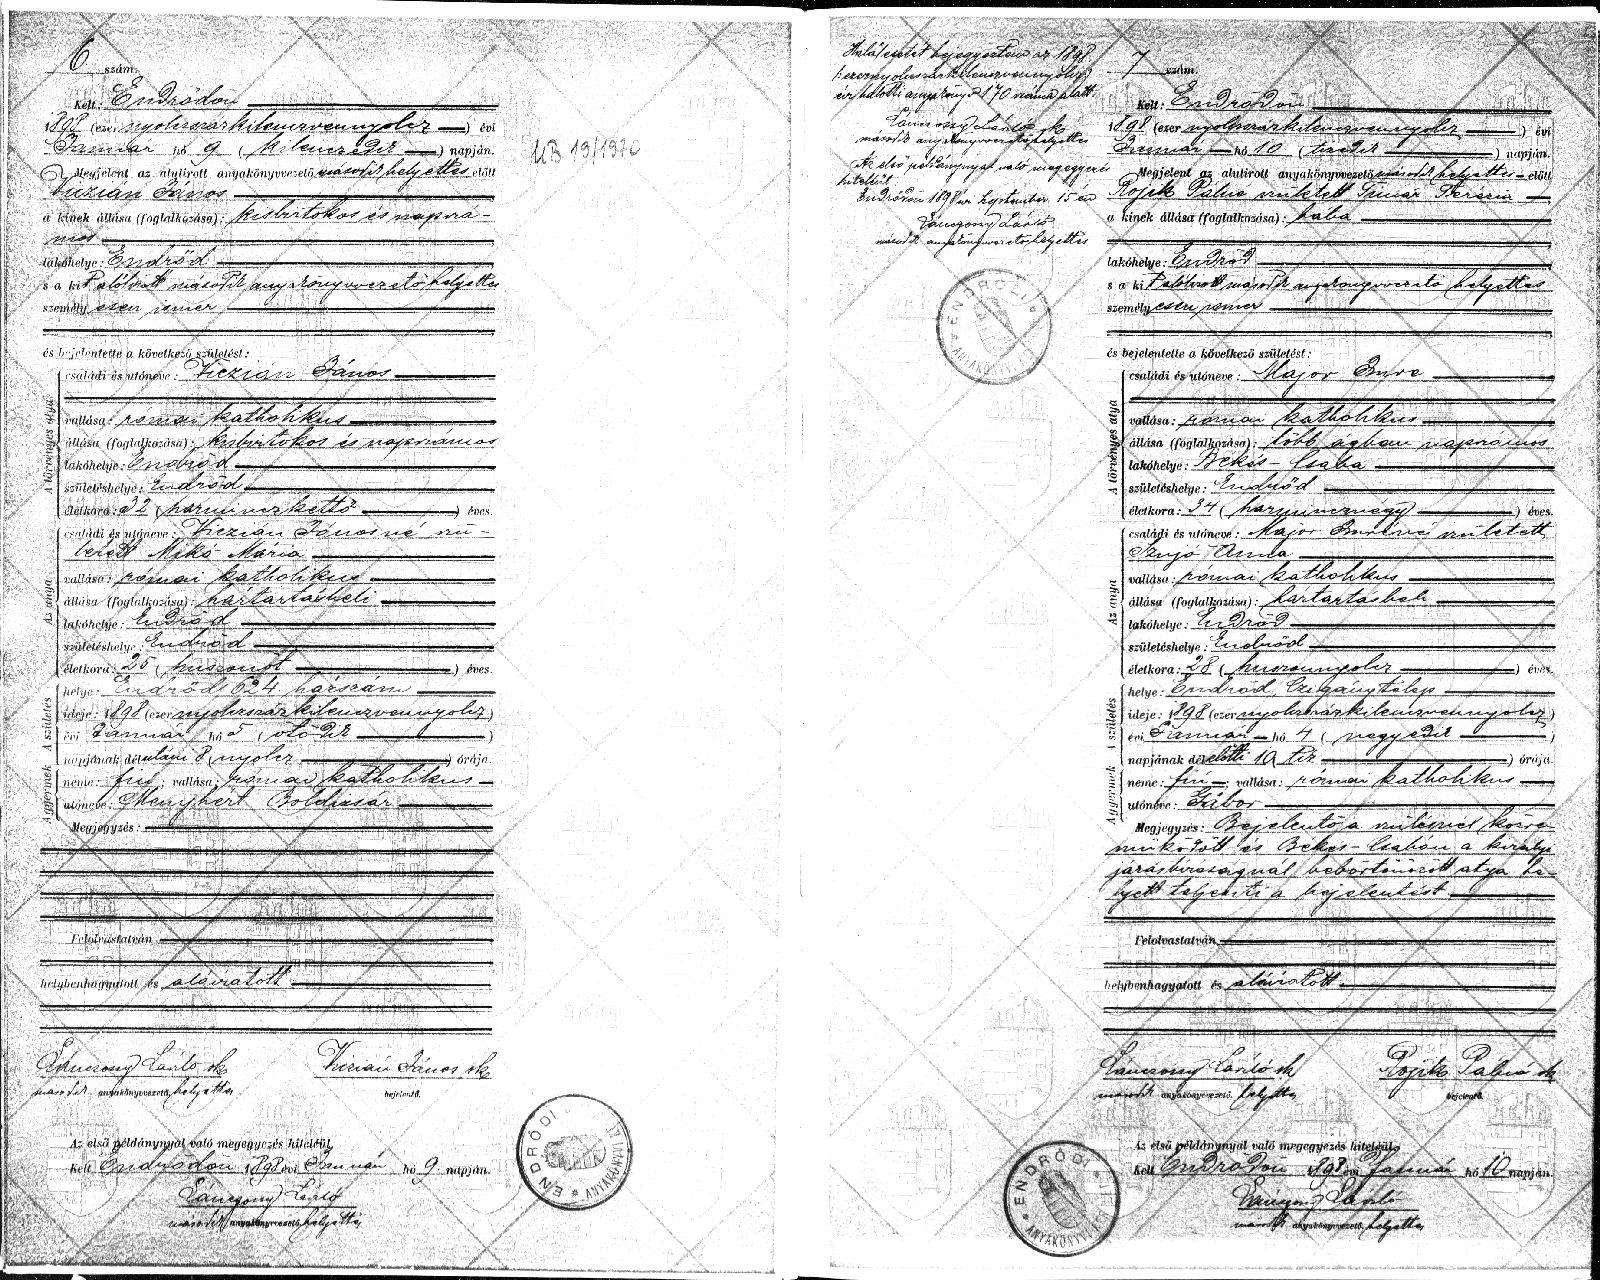 6 szám.
Kelt: Endrődön
1898 (ezer nyolcszázkilenczvennyolcz) évi
Január hó 9 (kilenczedik) napján.
Megjelent az alulirott anyakönyvvezető második helyettes előtt
Viczián János
a kinek állása (foglalkozása): kisbirtokos és napszá-
mos
lakóhelye: Endrőd
s a kit alólirott második anyakönyvvezető helyettes
személyesen ismer
és bejelentette a következő születést:
A törvényes atya
családi és utóneve: Viczián János
vallása: római katholikus
állása (foglalkozása): kisbirtokos és napszámos
lakóhelye: Endrőd
születéshelye: Endrőd
életkora: 32 (harminczkettő) éves.
Az anya
családi és utóneve: Viczián Jánosné szü-
letett Mikó Mária
vallása: római katholikus
állása (foglalkozása): háztartásbeli
lakóhelye: Endrőd
születéshelye: Endrőd
életkora: 25 (huszonöt) éves.
A születés
helye: Endrőd 624 házszám
ideje: 1898 (ezer nyolcszázkilenczvennyolcz)
évi Január hó 5 (ötödik)
napjának délutáni 8 (nyolcz) órája.
A gyermek
neme: fiu, vallása: római katholikus
utóneve: Menyhért Boldizsár
Megjegyzés:
Felolvastatván
helybenhagyatott és aláiratott
Lánczony László sk Viczián János sk
második anyakönyvvezető helyettes bejelentő.
Az első példánynyal való megegyezés hiteléül
Kelt Endrődön 1898 évi Január hó 9 napján.
Lánczony László
második anyakönyvvezető helyettes
MB 19/1970
ENDRŐDI * ANYAKÖNYVI
Halálesetét bejegyeztem az 1898
(ezernyolcszázkilenczvennyolcz)
évi halotti anyakönyv 170 száma alatt.
Lánczony László sk
második anyakönyvvezető helyettes
Az első példánynyal való megegyezés
hiteléül
Endrődön 1898 évi September 15 én
Lánczony László
második anyakönyvvezető helyettes
ENDRŐDI * ANYAKÖNYVI
7 szám.
Kelt: Endrődön
1898 (ezer nyolcszázkilenczvennyolcz) évi
Január hó 10 (tizedik) napján.
Megjelent az alulirott anyakönyvvezető második helyettes előtt
Rojik Pálné született Timár Terézia
a kinek állása (foglalkozása): bába
lakóhelye: Endrőd
s a kit alólirott második anyakönyvvezető helyettes
személyesen ismer
és bejelentette a következő születést:
A törvényes atya
családi és utóneve: Major Imre
vallása: római katholikus
állása (foglalkozása): több ágban napszámos
lakóhelye: Békés-Csaba
születéshelye: Endrőd
életkora: 34 (harmincznégy) éves.
Az anya
családi és utóneve: Major Imréné született
Szujó Anna
vallása: római katholikus
állása (foglalkozása): háztartásbeli
lakóhelye: Endrőd
születéshelye: Endrőd
életkora: 28 (huszonnyolcz) éves.
A születés
helye: Endrőd, Czigánytelep
ideje: 1898 (ezer nyolcszázkilenczvennyolcz)
évi Január hó 4 (negyedik)
napjának délelőtti 10 tiz órája.
A gyermek
neme: fiu vallása: római katholikus
utóneve: Gábor
Megjegyzés: Bejelentő a szülésnél közre
működött és Békés-Csabán a királyi
járásbiróságnál bebörtönözött atya he-
lyett teljesiti a bejelentést
Felolvastatván
helybenhagyatott és aláiratott
Lánczony László sk Rojik Pálné sk
második anyakönyvvezető. helyettes bejelentő.
Az első példánynyal való megegyezés hiteléül
Kelt Endrődön 1898 évi Január hó 10 napján.
Lánczony László
második anyakönyvvezető helyettes
ENDRŐDI * ANYAKÖNYVI